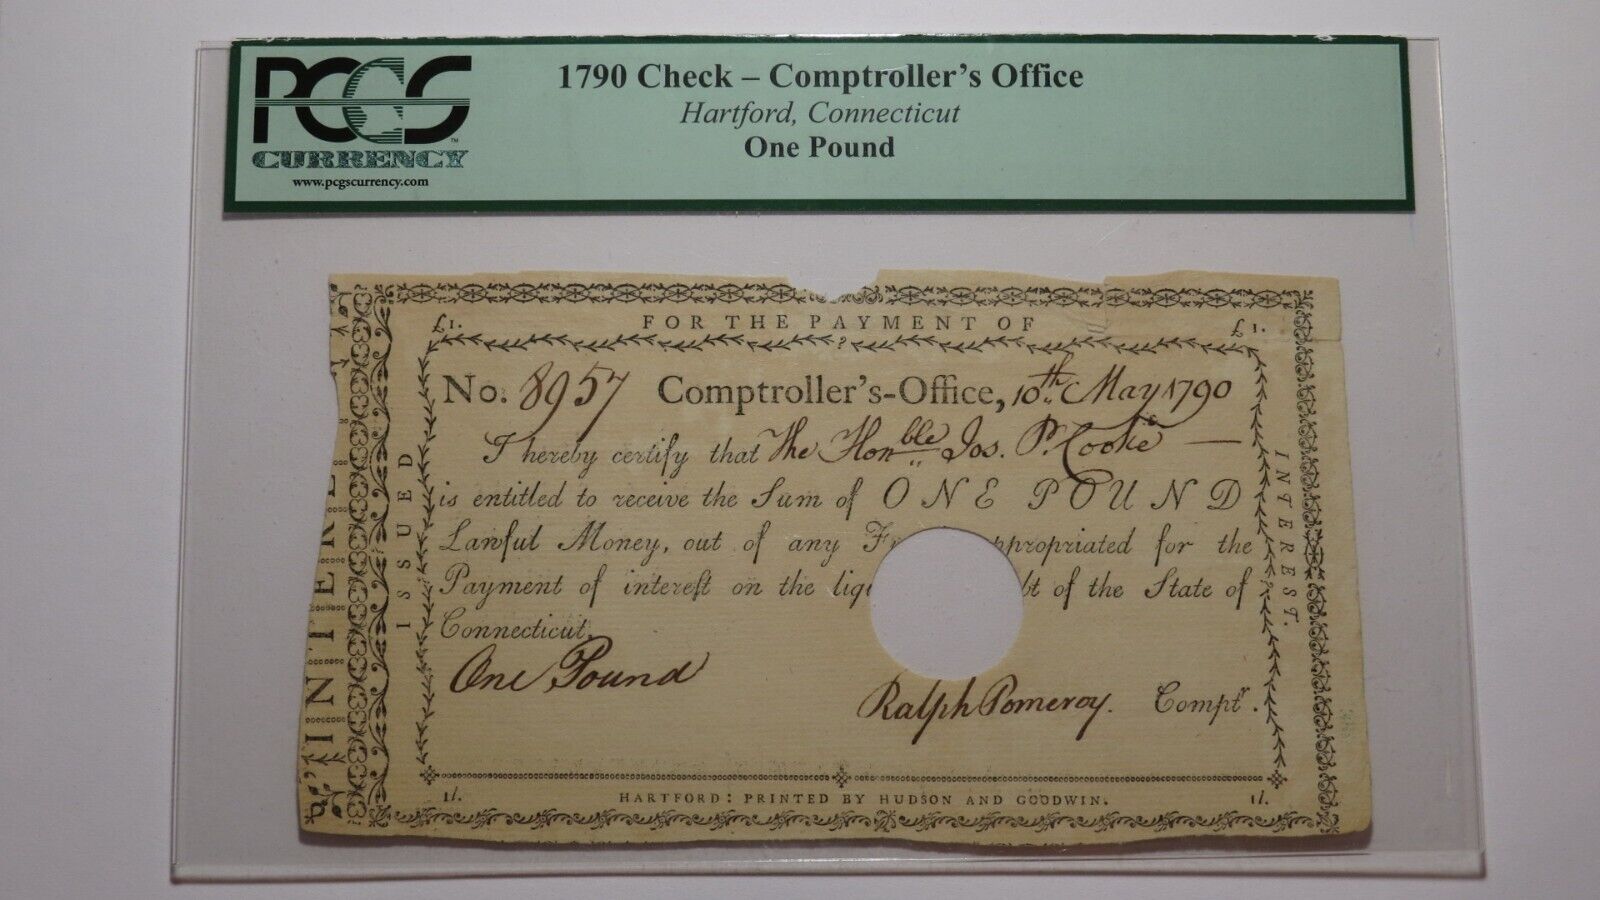 PCGS
CURRENCY
www.pcgscurrency.com
1790 Check – Comptroller's Office
Hartford, Connecticut
One Pound
£1. FOR THE PAYMENT OF £1.
No. 8957 Comptroller's-Office, 10th May 1790
I hereby certify that The Honble Jos. P. Cooke
is entitled to receive the Sum of ONE POUND
Lawful Money, out of any appropriated for the
Payment of intereſt on the of the State of
Connecticut.
One Pound
Ralph Pomeroy. Comptr.
1/. HARTFORD: PRINTED BY HUDSON AND GOODWIN. 1/.
ISSUED
INTEREST.